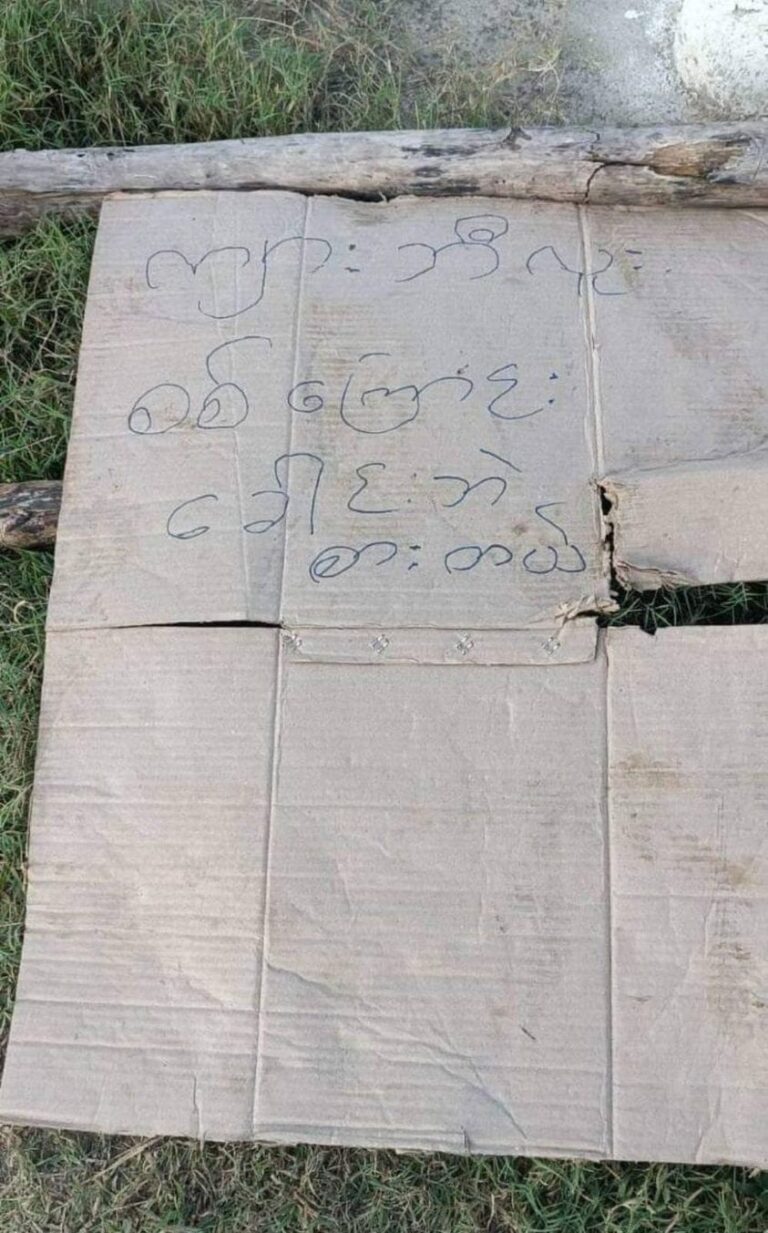 ကျားဘီလူး
စစ်ကြောင်း
ခေါင်းဘဲ
စားတယ်